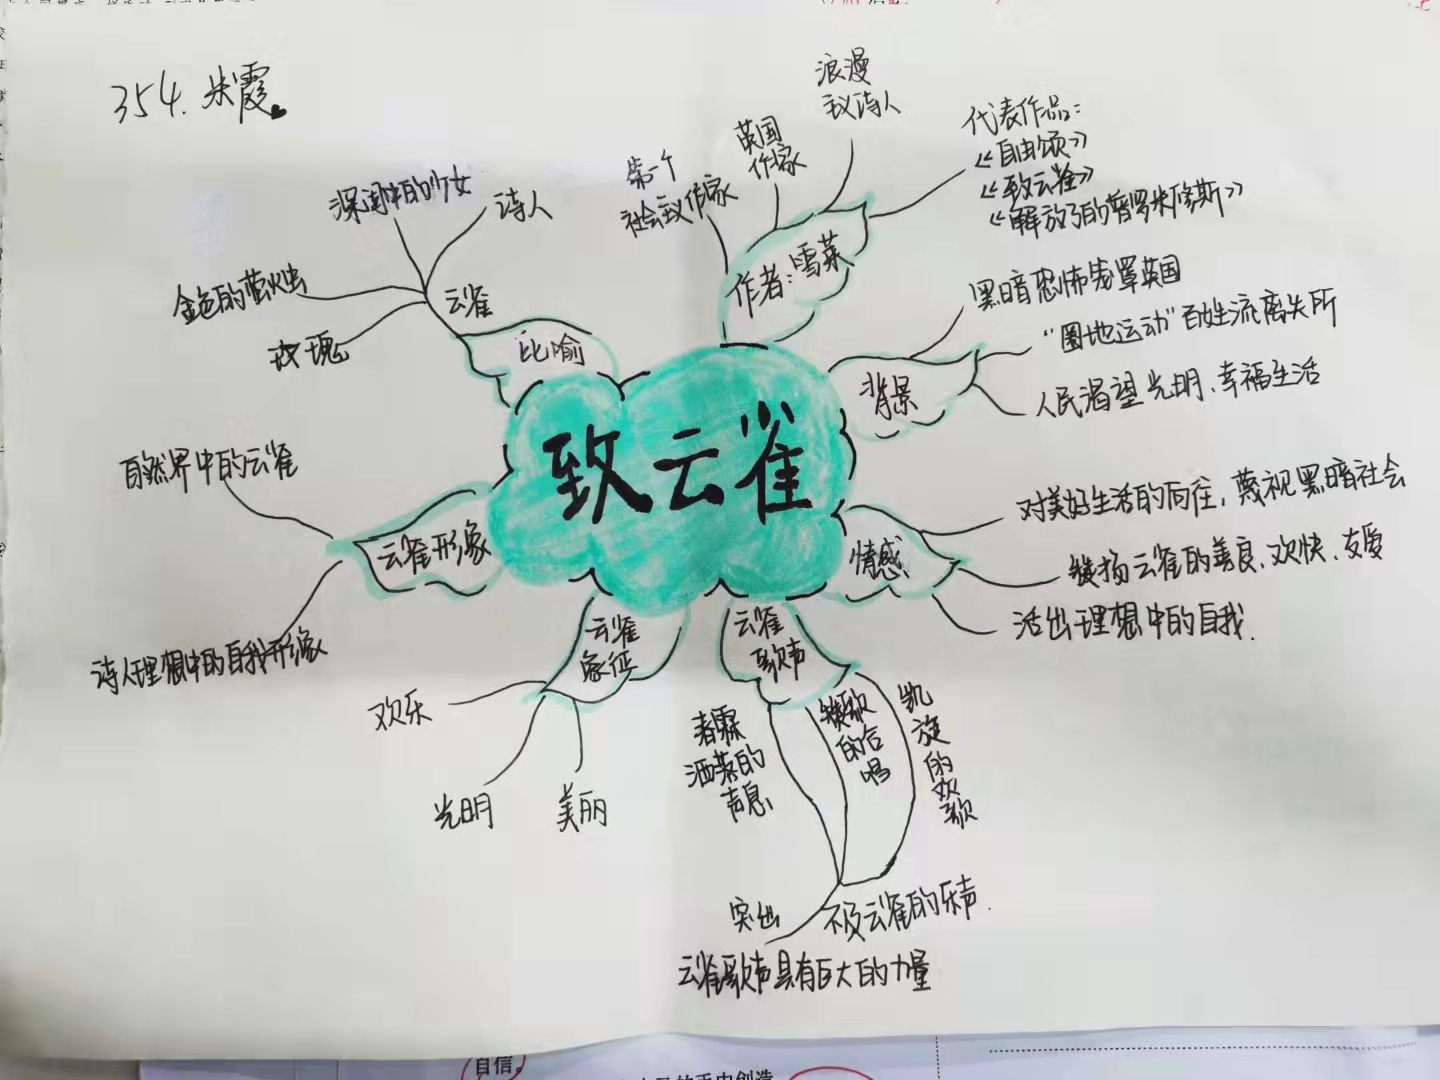 354. 朱霞
致云雀
作者:雪莱
第一个
社会主义作家
英国
作家
浪漫
主义诗人
代表作品:
《自由颂》
《致云雀》
《解放了的普罗米修斯》
背景
黑暗恐怖笼罩英国
“圈地运动”百姓流离失所
人民渴望光明、幸福生活
情感
对美好生活的向往,蔑视黑暗社会
赞扬云雀的善良、欢快、友爱
活出理想中的自我.
云雀
歌声
春霖
洒落的
声息
赞歌
的合
唱
凯
旋
的
欢
歌
不及云雀的乐声.
突出
云雀歌声具有巨大的力量
云雀
象征
欢乐
光明
美丽
云雀形象
自然界中的云雀
诗人理想中的自我形象
比喻
云雀
深闺中的少女
诗人
金色的萤火虫
玫瑰
自信。